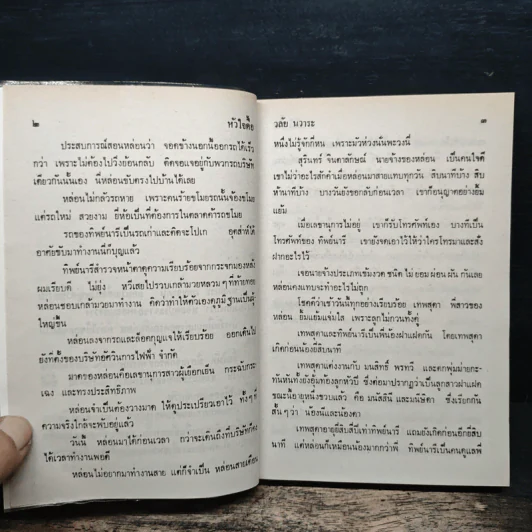 ๒ หัวใจดื้อ
ประสบการณ์สอนหล่อนว่า จอดข้างนอกนี้ออกรถได้เร็ว
กว่า เพราะไม่ต้องไปวิ่งย้อนกลับ ติดจอแจอยู่กับพวกรถบริษัท
เดียวกันนั้นเอง นี่หล่อนขับตรงไปบ้านได้เลย
หล่อนไม่กลัวรถหาย เพราะคนร้ายขโมยรถนั้นจ้องขโมย
แต่รถใหม่ สวยงาม ยี่ห้อเป็นที่ต้องการในตลาดค้ารถขโมย
รถของทิพย์นารีเป็นรถเก่าและคิดจะไปเก อุตส่าห์ได้
อาศัยขับมาทำงานนี่ก็บุญแล้ว
ทิพย์นารีสำรวจหน้าตาดูความเรียบร้อยจากกระจกมองหลัง
ผมเรียบดี ไม่ยุ่ง หวีเสยไปรวบเกล้ามวยหลวม ๆ ที่ท้ายทอย
หล่อนชอบเกล้ามวยมาทำงาน คิดว่าทำให้ตัวเองดูภูมิฐานเป็นผู้
ใหญ่ขึ้น
หล่อนลงจากรถและล็อคกุญแจให้เรียบร้อย ออกเดินไป
ยังที่ตั้งของบริษัทอัศวินการไฟฟ้า จำกัด
มาดของหล่อนคือเลขานุการสาวผู้เยือกเย็น กระฉับกระ
เฉง และทรงประสิทธิภาพ
หล่อนจำเป็นต้องวางมาด ให้ดูประเปรียวเอาไว้ ทั้งๆ ที่
ความจริงใกล้จะพับอยู่แล้ว
วันนี้ หล่อนมาได้ก่อนเวลา กว่าจะเดินถึงที่บริษัทก็คง
ได้เวลาทำงานพอดี
หล่อนไม่อยากมาทำงานสาย แต่ก็จำเป็น หล่อนสายเดือน
วลัย นวาระ ๓
หนึ่งไม่รู้จักกี่หน เพราะมัวห่วงนั่นพะวงนี่
สุรินทร์ จินดาลักษณ์ นายจ้างของหล่อน เป็นคนใจดี
เขาไม่ว่าอะไรสักคำเมื่อหล่อนมาสายแทบทุกวัน สิบนาทีบ้าง สิบ
ห้านาทีบ้าง บางวันยังขอกลับก่อนเวลา เขาก็อนุญาตอย่างยิ้ม
แย้ม
เมื่อเลขานุการไม่อยู่ เขาก็รับโทรศัพท์เอง บางทีเป็น
โทรศัพท์ของ ทิพย์นารี เขายังจดเอาไว้ให้ว่าใครโทรมาและสั่ง
ฝากอะไรไว้
เจอนายจ้างประเภทเข้มงวด ชนิด ไม่ ยอม ผ่อน ผัน กันเลย
หล่อนคงแทบจะทำอะไรไม่ถูก
โชคดีว่าเช้าวันนี้ทุกอย่างเรียบร้อย เทพสุดา พี่สาวของ
หล่อน ยิ้มแย้มแจ่มใส เพราะลูกไม่กวนทั้งคู่
เทพสุดาและทิพย์นารีเป็นพี่น้องฝาแฝดกัน โดยเทพสุดา
เกิดก่อนน้องยี่สิบนาที
เทพสุดาแต่งงานกับ มนสิทธิ์ พรทวี และตกพุ่มม่ายกะ
ทันหันทั้งยังอุ้มท้องลูกหัวปี ซึ่งต่อมาปรากฏว่าเป็นลูกสาวฝาแฝด
ขณะนี้อายุหนึ่งขวบแล้ว คือ มนัสินี และมนิษิดา ซึ่งเรียกกัน
สั้น ๆ ว่า น้องนีและน้องดา
เทพสุดาอายุยี่สิบสี่ปีเท่าทิพย์นารี แถมยังเกิดก่อนอีกยี่สิบ
นาที แต่หล่อนก็เหมือนน้องมากกว่าพี่ ทิพย์นารีเป็นคนดูแลพี่